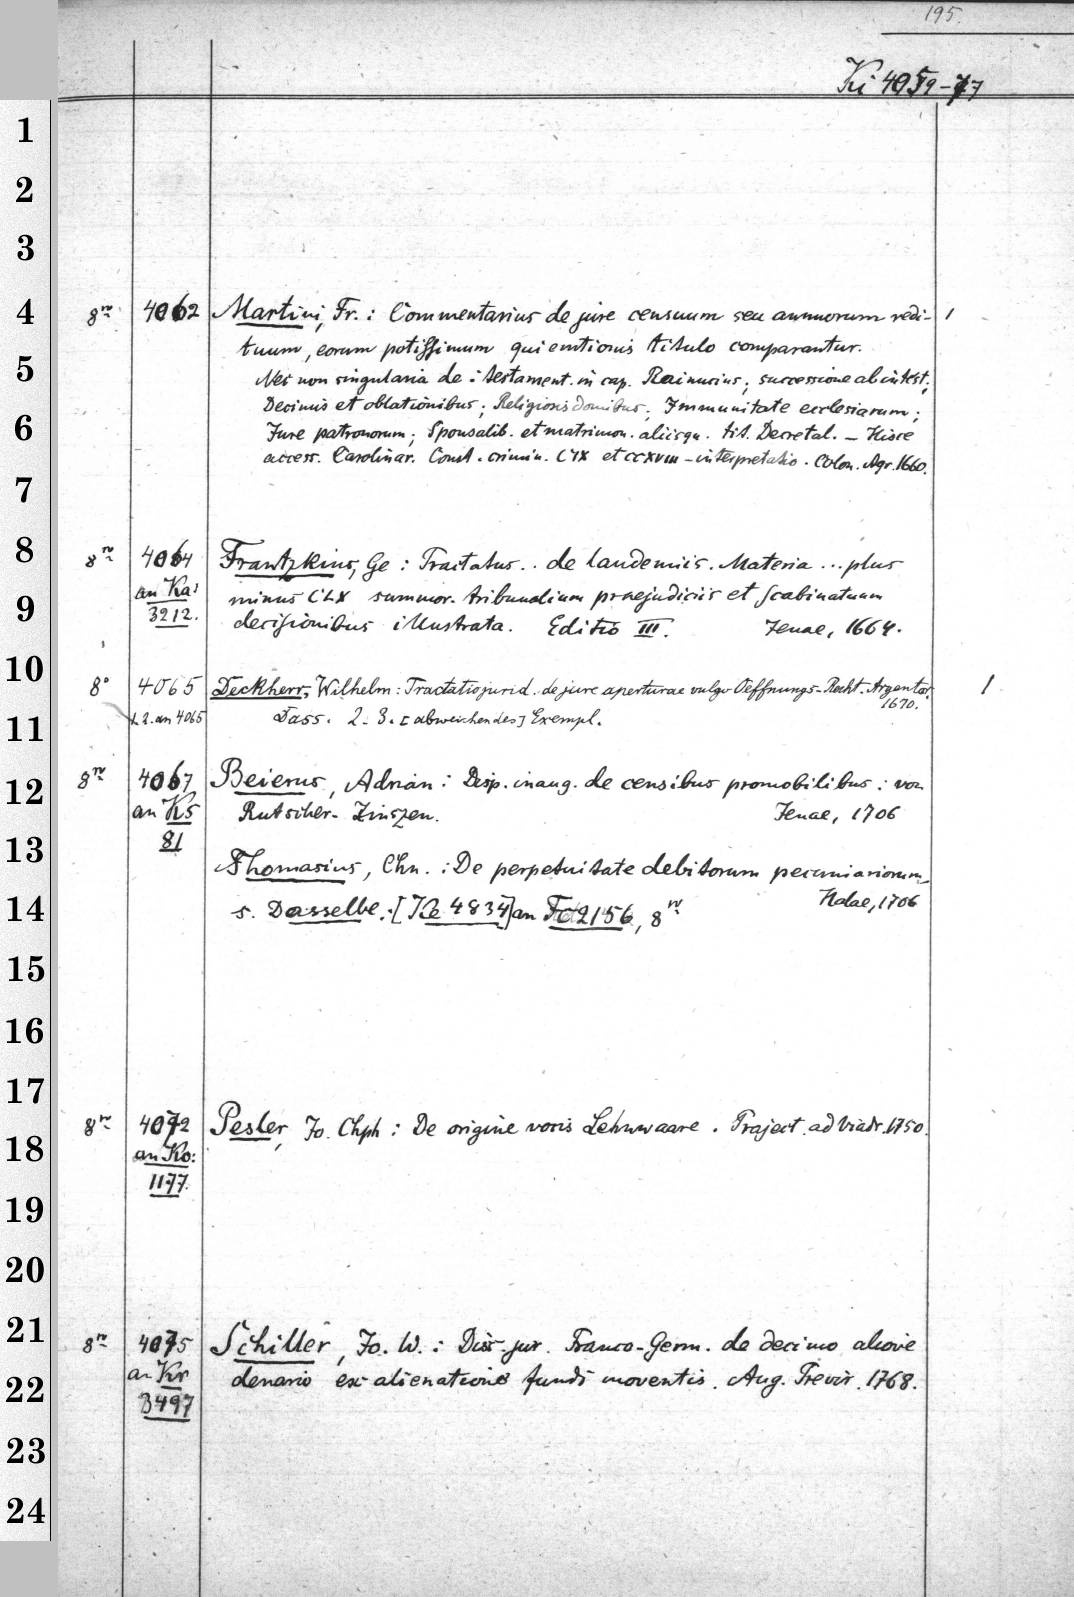 195.
Ki 4059-77
1
2
3
4
5
6
7
8
9
10
11
12
13
14
15
16
17
18
19
20
21
22
23
24
8ʳᵛ 4062 Martini, Fr.: Commentarius de jure censuum seu annuorum redi- 1
tuum, eorum potissimum qui emtionis titulo comparantur.
Nec non singularia de: testament. in cap. Rainucius; successione ab intest.;
Decimis et oblationibus; Religiosis domibus; Immunitate ecclesiarum;
Jure patronorum; Sponsalib. et matrimon. aliisqu. tit. Decretal. – Hisce
access. Carolinar. Const. crimin. CIX et CCXVIII – interpretatio. Colon. Agr. 1660.
8ʳᵛ 4064 Frantzkius, Ge: Tractatus.. de laudemiis. Materia ... plus
an Ka: minus CLX summor. tribunalium praejudiciis et scabinatuum
3212. decisionibus illustrata. Editio III. Jenae, 1664.
8° 4065 Deckherr, Wilhelm: Tractatio jurid. de jure aperturae vulgo Oeffnungs-Recht. Argentor. 1
1670.
1.2. an 4065 Dass. 2. 3. [abweichendes] Exempl.
8ʳᵛ 4067 Beierus, Adrian: Disp. inaug. de censibus promobilibus: von
an Ks Rutscher-Zinszen. Jenae, 1706
81
Thomasius, Chn.: De perpetuitate debitorum pecuniariorum
Halae, 1706
s. Dasselbe: [Ke 4834] an Fc 2156, 8ʳᵛ
8ʳᵛ 4072 Pesler, Jo. Chph: De origine vocis Lehnwaare. Traject. ad Viadr. 1750.
an Ko:
1177.
8ʳᵛ 4075 Schiller, Jo. W.: Diss. jur. Franco-Germ. de decimo aliove
an Kr denario ex alienatione fundi moventis. Aug. Trevir. 1768.
3497